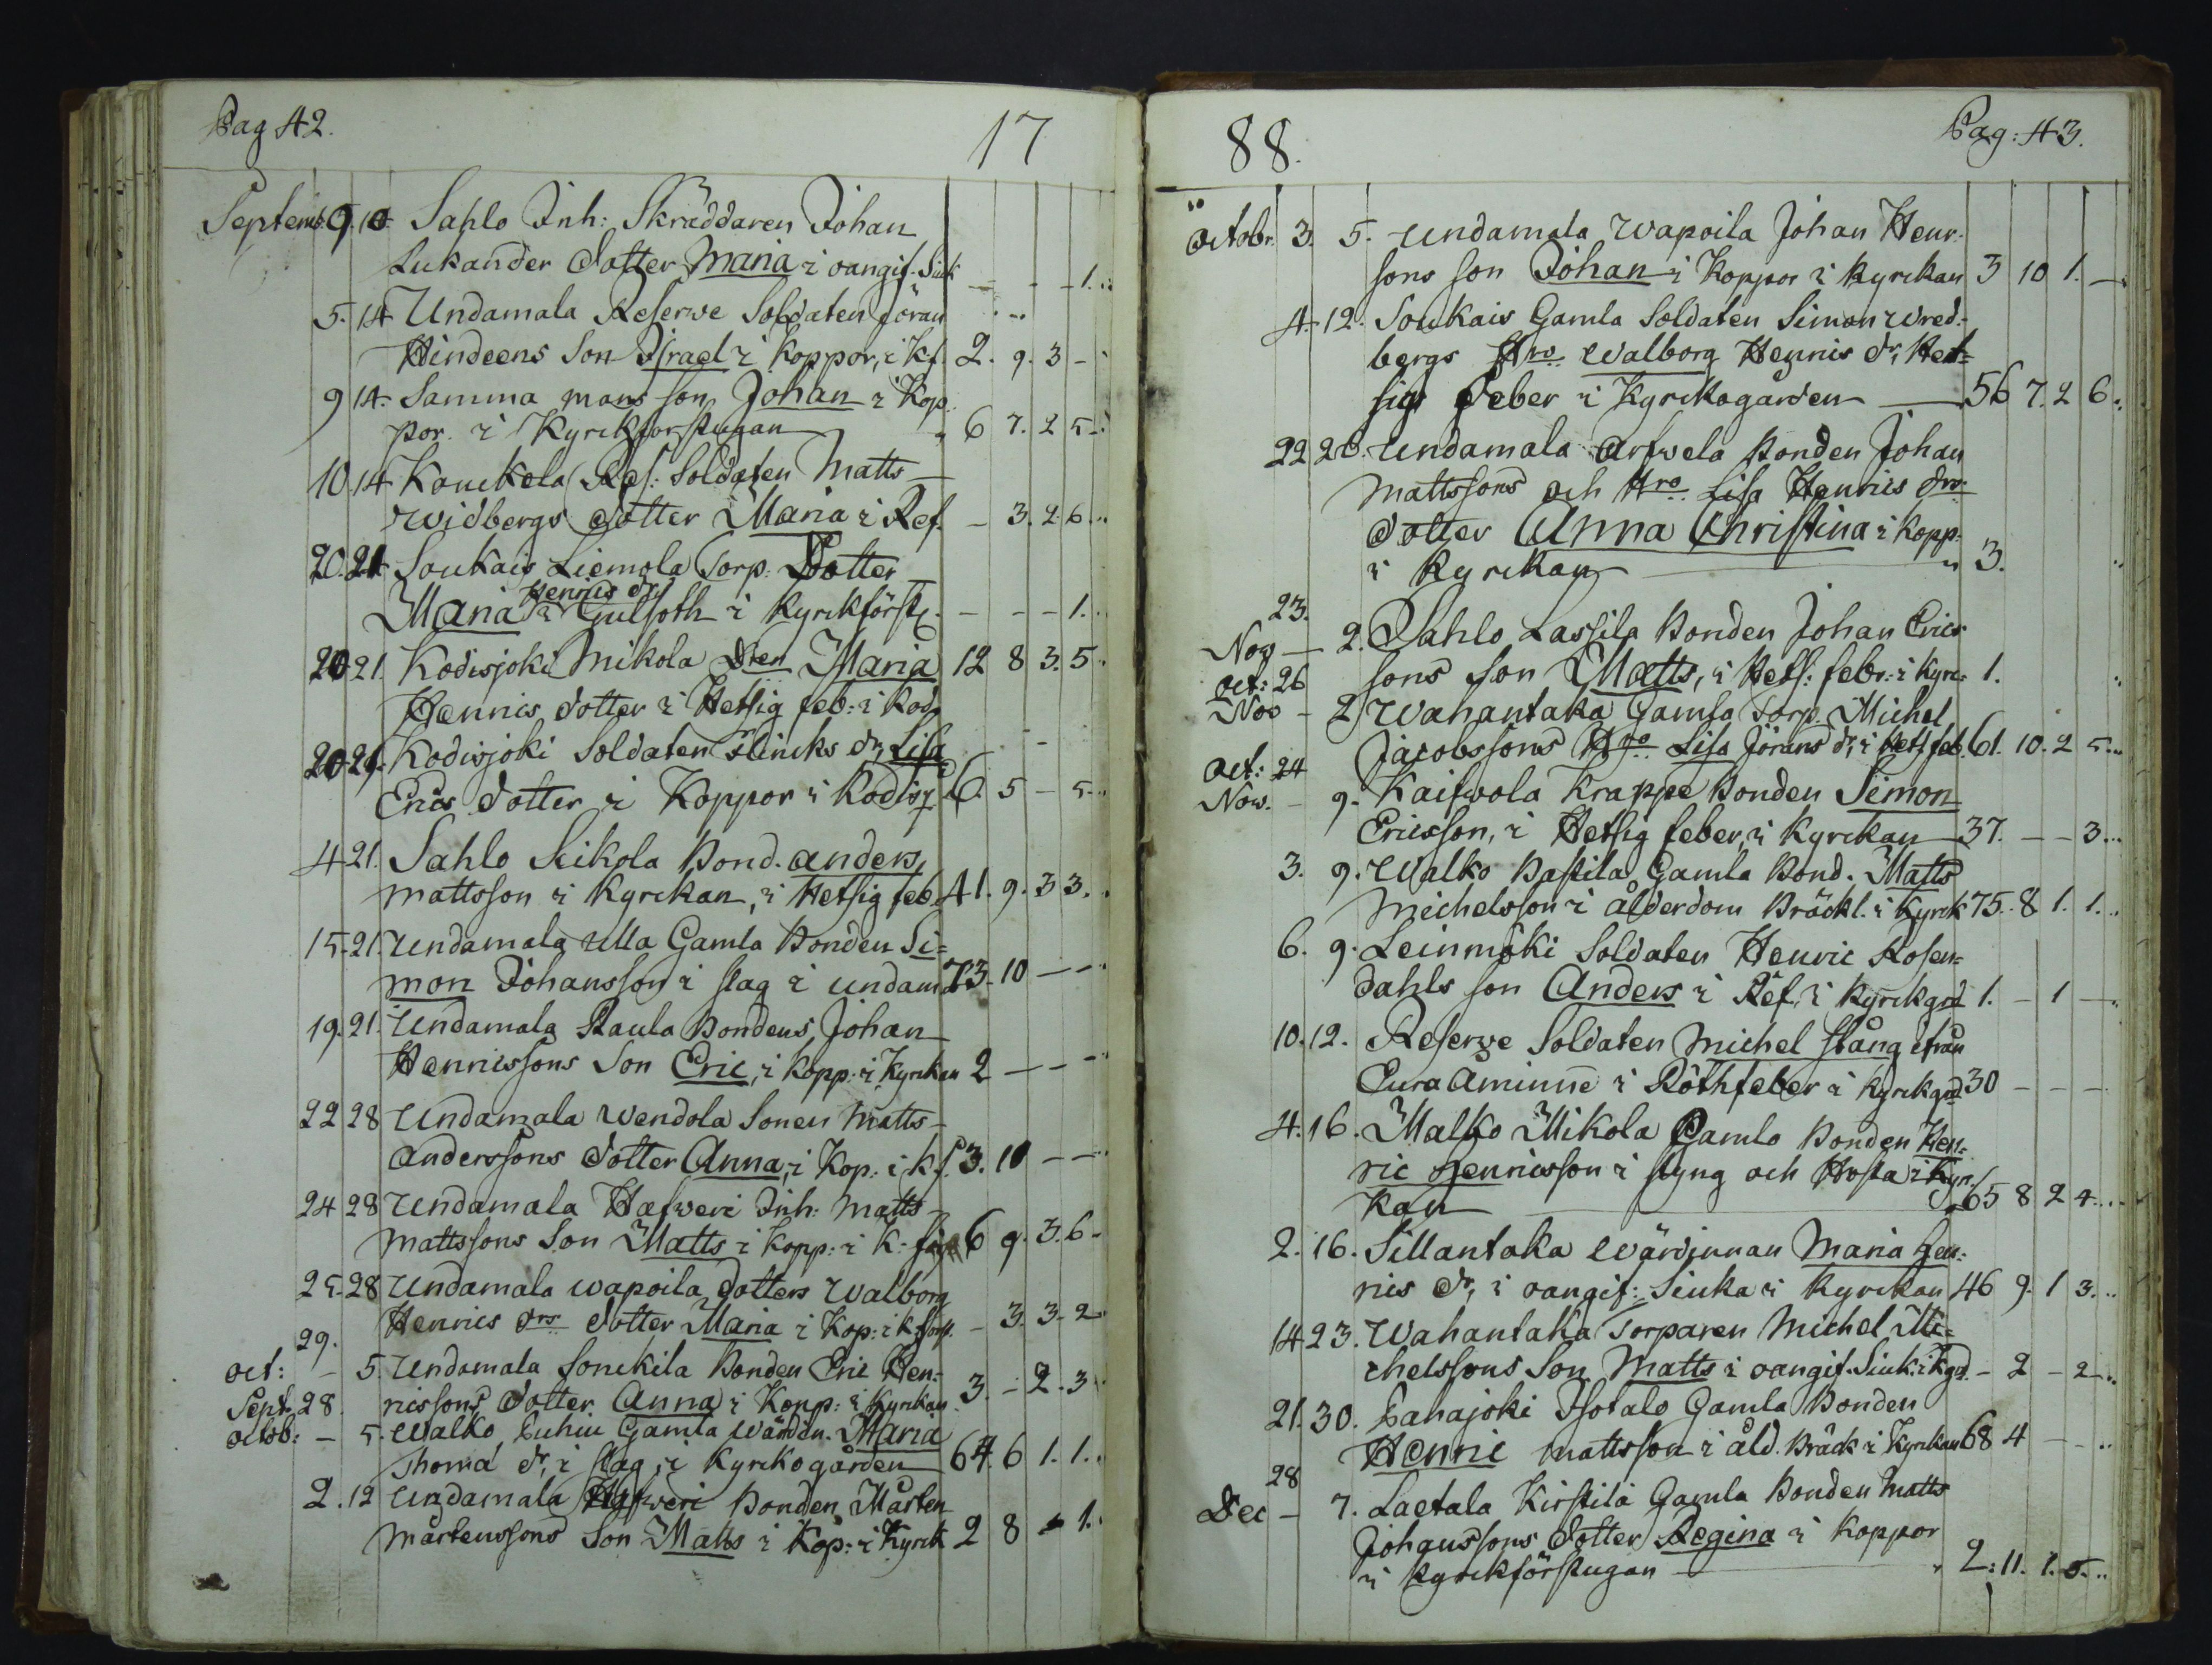 Pag 42. 17
Septemb. 9. 14. Sahlo Inh: Skräddaren Johan
Lukander dotter Maria i oangif. Siuk - - - 1.
5. 14 Undamala Reserve Soldaten Jöran
Hindeens Son Israel i Koppor, i Kf. 2. 9. 3 -
9 14. Samma mans son Johan i Kop-
por. i Kyrckforstugan 6 7. 2 5.
10 14 Kouckela Res: Soldaten Matts
Widbergs dotter Maria i Ref. - 3. 2. 6.
20. 21 Soukais Liemola Torp. Dotter
Henrics dr
Maria Gulsoth i Kyrckförst. - - - 1.
20 21. Kodisjoki Mikola Maria 12 8 3. 5.
Hennis dotter i Hetsig feb: i Kod.
20 21. Kodisjoki Soldaten Flincks dr, Lisa
Erics dotter i Koppor i Kodisj. 6. 5 - 5.
4 21. Sahlo Seikola Bond. Anders
Mattsson i Kyrckan, i Hetsig feb. 41. 9. 3 3.
15. 21. Undamala Ulla Gamla Bonden Si=
mon Johansson i slag i undam 73. 10 - -
19. 21. Undamala Raula Bondens Johan
Henricssons Son Eric, i Kopp. i Kyrckan 2 - - -
22 28 Undamala Wendola Sonen Matts
Anderssons dotter Anna, i Kop: i kf. 3. 10 - -
24 28 Undamala Hafweri Inh: Matts
Mattssons Son Matts i Kopp: i K: 6 9. 3. 6.
25. 28 Undamala Wapoila dotters Walborg
Henrics drs dotter Maria i Kop: i k. - 3. 3. 2.
29.
Oct: - 5. Undamala Sonckila Bonden Eric Hen-
Sept. 28. ricssons dotter Anna i Kopp: i Kyrckan 3. - 2. 3
Octob: - 5. Walko Gamla Wärdin. Maria
Thoma dr, i slag, i Kyrckogården 64. 6 1. 1.
2. 12 Undamala Hafweri Bonden Mårten
Mårtenssons Son Matts i Kop: i Kyrck 2 8 - 1.
88. Pag: 43.
Octobr. 3. 5. Undamala Wapoila Johan Henr-
sons son Johan i Koppor i Kyrckan 3 10 1. -
4. 12. Soukais Gamla Soldaten Simon Wred-
bergs Hro Walborg Hennis dr, Het=
sig feber i Kyrckogården 56 7. 2 6.
22 26. Undamala Arfwela Bonden Johan
Mattssons och Hro Lisa Henrics drs
dotter Anna Christina i Kopp.
i Kyrckan 3.
23.
Nov - 2. Sahlo Lassila Bonden Johan Erics
Oct: 26 sons son Matts, i Hets: febr: i Kyrc. 1.
Nov - 2 Wahantaka Gamla Torp. Michel
Jacobssons Hro Lisa Jörans dr, i Hets feb. 61. 10. 2 5.
Oct: 24
Nov. - 9. Kaifwola Krappe Bonden Simon
Ericsson, i Hetsig feber, i Kyrckan 37. - - 3.
3. 9. Walko Pastila Gamla Bond. Matts
Michelsson i ålderdom Bräckl. i Kyrck 75. 8 1. 1.
6. 9. Leinmäki Soldaten Henric Rosen=
dahls son Anders i Ref, i Kyrckgrd 1. - 1 -
10. 12. Reserve Soldaten Michel Stång ifrån
Eura Aminne i Röthfeber i Kyrckgrd 30 - - -
4. 16. Malko Mikola Gamla Bonden Hen=
ric Henricsson i styng och Hosta i Kyr.
kan 65 8 2 4.
2. 16. Sillantaka Wärdinnan Maria Hen=
rics dr, i oangif: Siuka i Kyrckan 46 9. 1 3.
14 23. Wahantaka Torparen Michel Mi=
chelssons Son Matts i oangif. Siuk. i Kgd. - 2 - 2.
21. 30. Panajoki Isotalo Gamla Bonden
Henric Mattsson i åld. Bräck i Kyrckan 68 4 - -
28
Dec - 7. Laetala Kirstilä Gamla Bonden Matts
Johanssons dotter Regina i Koppor
i Kyrckförstugan 2: 11. 1. 5.